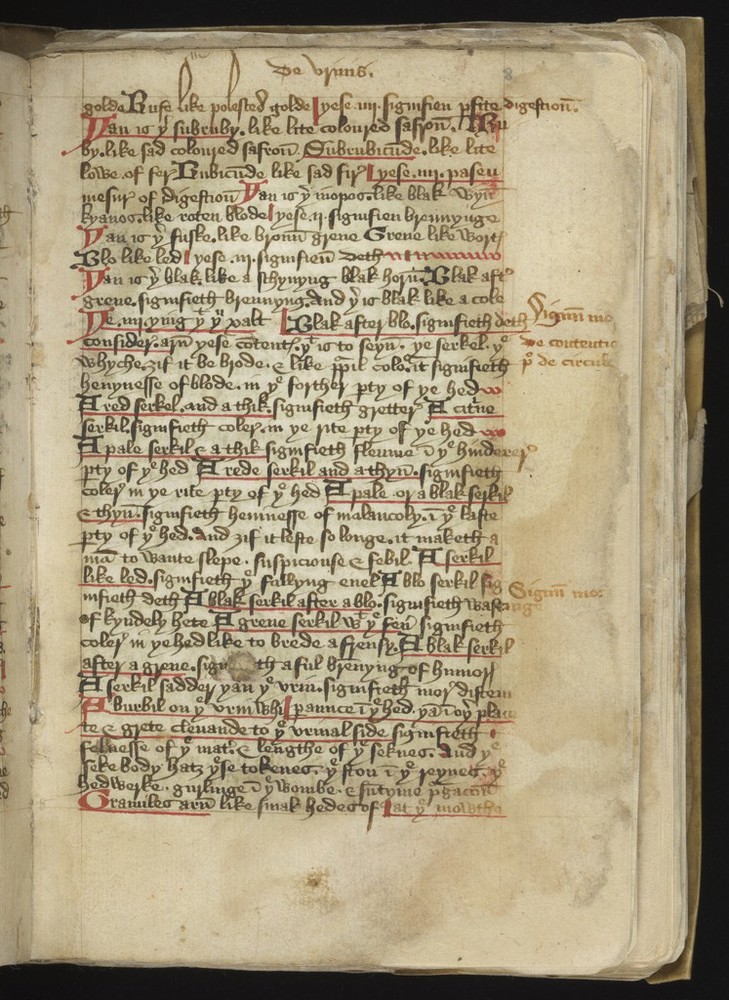 De vrinis.
8
golde Rufe like polested golde yese .iiii. signifien pfite digestion.
Yan is yͤ subruby. like lite coloured safron. Rup
by. like sad coloured safron. Subrubicunde. like lite
lowe of fer Rubicunde like sad fir yese .iiii. pasen
mesur of digestion Yan is yͤ inopos. like blak wyn
kyanos. like roten blode yese .ii. signifien brennynge
Yan is yͤ fuske. like broun grene Grene like wort
Blo like led yese .iii. signifien deth
Yan is yͤ blak. like a schynyng blak horn. Blak aft
grene. signifieth brennyng. And yͤ is blak like a cole
Blak after blo. signifieth deth
consider. arn yese cotent. yͭ is to seyn. ye serkel. yͤ
whyche. zif it be brode. & like ppil colo. it signifieth
henynesse of blode. in yͤ forther pty of ye hed
A red serkel. and a thik. signifieth gretter A citne
serkil. signifieth coler. in ye rite pty of ye hed
A pale serkil & a thik signifieth fleume i yͤ hinderer
pty of yͤ hed A rede serkil and a thyn. signifieth
coler in ye rite pty of yͤ hed A pale. or a blak serkil
& thyn. signifieth heninesse of malancoly. i yͤ lafte
pty of yͤ hed. And zif it leste so longe. it maketh a
ma to wante slepe. suspiciouse & febil. A serkil
like led. signifieth yͤ fallyng euel A blo serkil sig
nifieth deth A blak serkil after a blo. signifieth wast
of kyndely hete A grene serkil wͭ yͤ feu signifieth
coler in ye hed like to brede a frensy. A blak serkil
after a grene. sign th a ful brenyng of humor
A serkil sadder yan yͤ vrin. signifieth mor distem
A burbil on yͤ vrin whi pannce i yͤ hed. ya i oy place
te & grete cleuande to yͤ vrinal side signifieth
felnesse of yͤ mat. & lengthe of yͤ seknes. And yͤ
seke body hatz yse tokenes. yͤ ston i yͤ reynes. yͤ
hedwerke. gurlinge i yͤ wombe. &
Granules arn like smal hedes of at yͤ mowthe
Signum mo
de contentis
de circulo
Signum mor